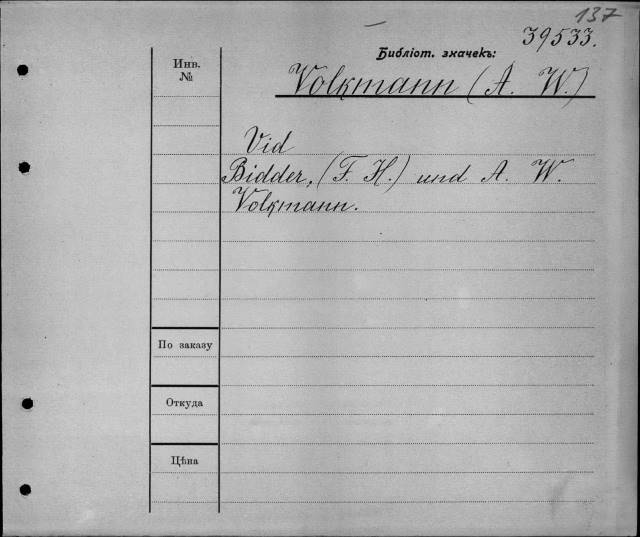 137
39533.
Библіот. значекъ:
Инв.
№
Volkmann (A. W.)
Vid
Bidder, (F. H.) und A. W.
Volkmann.
По заказу
Откуда
Цѣна